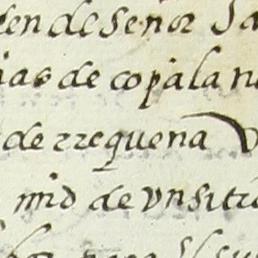 den de señor Ju
ias de copala n
de rrequena V
mjd de vn sitio